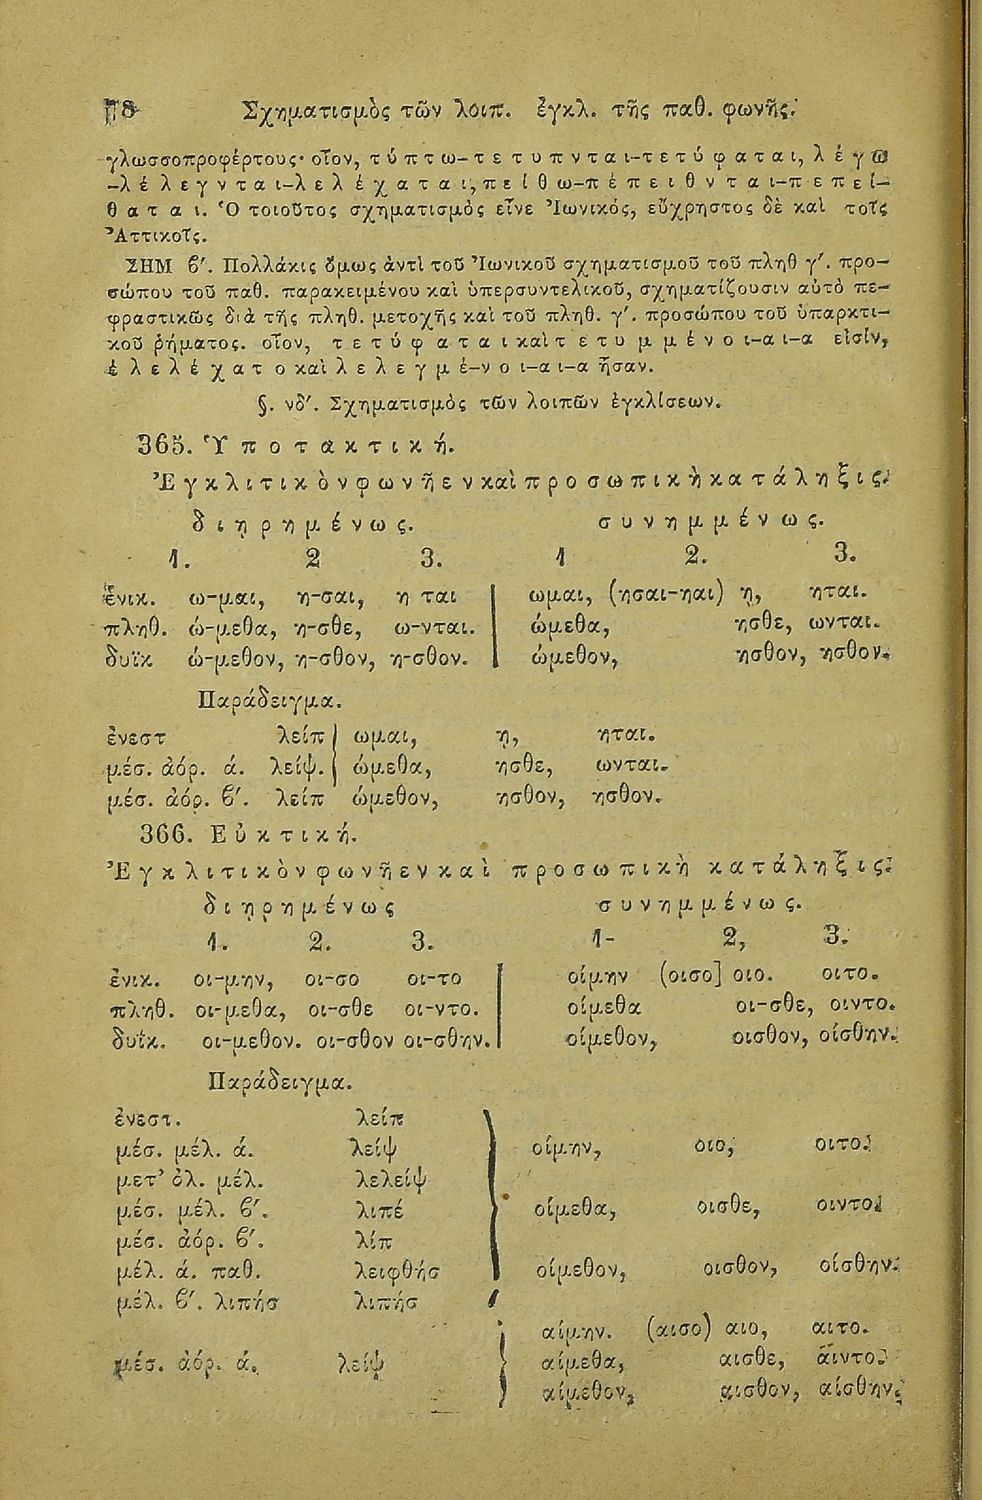 178 Σχηματισμὸς τῶν λοιπ. ἐγκλ. τῆς παθ. φωνῆς.
γλωσσοπροφέρτους· οἷον, τύπτω-τετυπνται-τετύφαται, λέγω
-λέλεγνται-λελέχαται, πείθω-πέπειθνται-πεπεί-
θαται. Ὁ τοιοῦτος σχηματισμὸς εἶνε Ἰωνικός, εὔχρηστος δὲ καὶ τοῖς
Ἀττικοῖς.
ΣΗΜ β′. Πολλάκις ὅμως ἀντὶ τοῦ Ἰωνικοῦ σχηματισμοῦ τοῦ πληθ γ′. προ-
σώπου τοῦ παθ. παρακειμένου καὶ ὑπερσυντελικοῦ, σχηματίζουσιν αὐτὸ πε-
φραστικῶς διὰ τῆς πληθ. μετοχῆς καὶ τοῦ πληθ. γ′. προσώπου τοῦ ὑπαρκτι-
κοῦ ῥήματος. οἷον, τετύφαται καὶ τετυμμένοι-αι-α εἰσίν,
ἐλελέχατο καὶ λελεγμέ-νοι-αι-α ἦσαν.
§. νδ′. Σχηματισμὸς τῶν λοιπῶν ἐγκλίσεων.
365. Ὑποτακτική.
Ἐγκλιτικὸν φωνῆεν καὶ προσωπικὴ κατάληξις:
διῃρημένως. συνημμένως.
1. 2 3. 1 2. 3.
ἑνικ. ω-μαι, η-σαι, η ται ωμαι, (ησαι-ηαι) ῃ, ηται.
πληθ. ώ-μεθα, η-σθε, ω-νται. ώμεθα, ησθε, ωνται.
δυϊκ ώ-μεθον, η-σθον, η-σθον. ώμεθον, ησθον, ησθον.
Παράδειγμα.
ἐνεστ λείπ ωμαι, ῃ, ηται.
μέσ. ἀόρ. ά. λείψ. ώμεθα, ησθε, ωνται.
μέσ. ἀόρ. β′. λείπ ώμεθον, ησθον, ησθον.
366. Εὐκτική.
Ἐγκλιτικὸν φωνῆεν καὶ προσωπικὴ κατάληξις:
διῃρημένως συνημμένως.
1. 2. 3. 1- 2, 3.
ἑνικ. οι-μην, οι-σο οι-το οίμην (οισο] οιο. οιτο.
πληθ. οι-μεθα, οι-σθε οι-ντο. οίμεθα οι-σθε, οιντο.
δυϊκ. οι-μεθον. οι-σθον οι-σθην. οίμεθον, οισθον, οίσθην.
Παράδειγμα.
ἐνεστ. λείπ
μέσ. μέλ. ά. λείψ οίμην, οιο, οιτο.
μετ' ὀλ. μέλ. λελείψ
μέσ. μέλ. β′. λιπέ οίμεθα, οισθε, οιντο.
μέσ. ἀόρ. β′. λίπ
μέλ. ά. παθ. λειφθήσ οίμεθον, οισθον, οίσθην.
μέλ. β′. λιπήσ λιπήσ
αίμην. (αισο) αιο, αιτο.
μέσ. ἀόρ. ά. λείψ αίμεθα, αισθε, αιντο.
αίμεθον, αισθον, αίσθην.